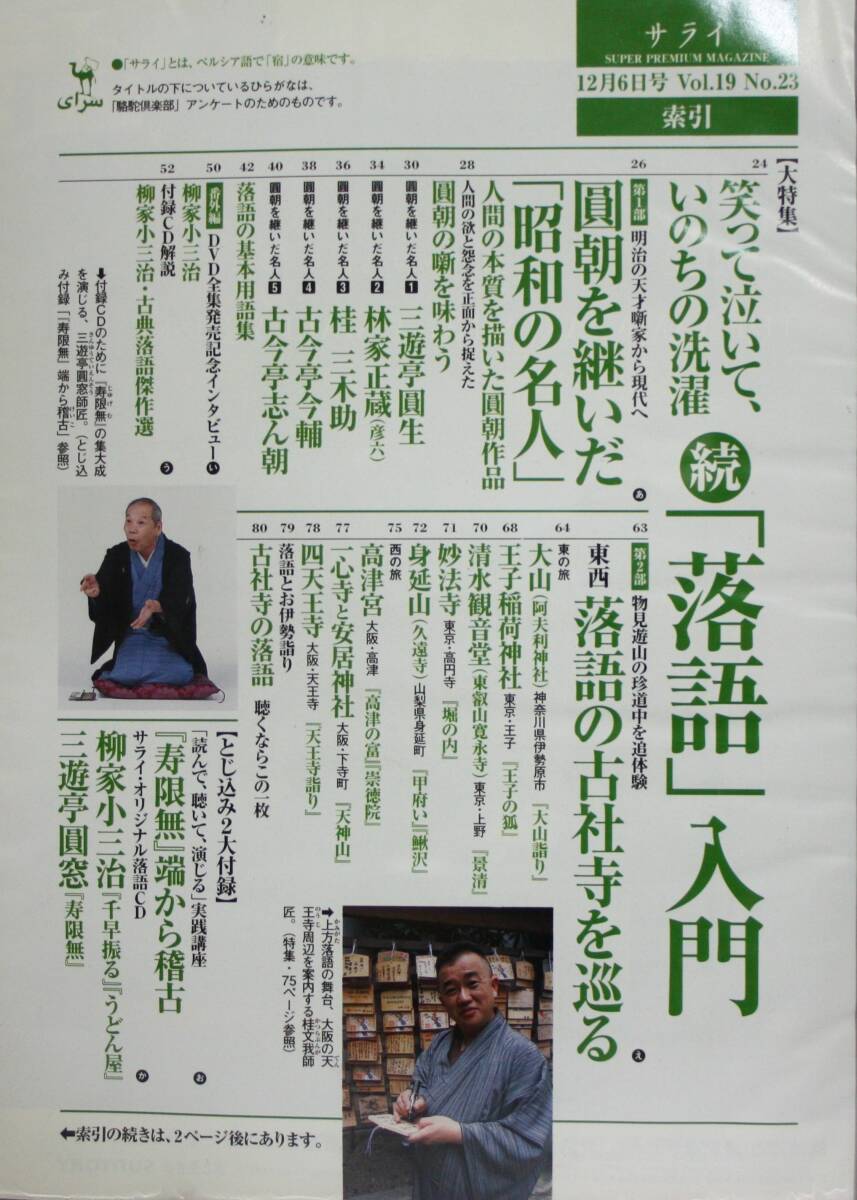 サライ
SUPER PREMIUM MAGAZINE
12月6日号 Vol.19 No.23
索引
●「サライ」とは、ペルシア語で「宿」の意味です。
タイトルの下についているひらがなは、
「駱駝倶楽部」アンケートのためのものです。
سرای
【大特集】
24
笑って泣いて、
いのちの洗濯
続「落語」入門
26
第1部 明治の天才噺家から現代へ
圓朝を継いだ
「昭和の名人」 あ
人間の本質を描いた圓朝作品
28
人間の欲と怨念を正面から捉えた
圓朝の噺を味わう
30
圓朝を継いだ名人1 三遊亭圓生
34
圓朝を継いだ名人2 林家正蔵(彦六)
36
圓朝を継いだ名人3 桂 三木助
38
圓朝を継いだ名人4 古今亭今輔
40
圓朝を継いだ名人5 古今亭志ん朝
42
落語の基本用語集
50
番外編 DVD全集発売記念インタビュー い
柳家小三治
52
付録CD解説
柳家小三治・古典落語傑作選 う
➡付録CDのために『寿限無』の集大成
を演じる、三遊亭圓窓師匠。(とじ込
み付録「『寿限無』端から稽古」参照)
63
第2部 物見遊山の珍道中を追体験
東西 落語の古社寺を巡る え
64
東の旅
大山(阿夫利神社) 神奈川県伊勢原市 『大山詣り』
68
王子稲荷神社 東京・王子 『王子の狐』
70
清水観音堂(東叡山寛永寺) 東京・上野 『景清』
71
妙法寺 東京・高円寺 『堀の内』
72
身延山(久遠寺) 山梨県身延町 『甲府い』『鰍沢』
75
西の旅
高津宮 大阪・高津 『高津の富』『崇徳院』
77
一心寺と安居神社 大阪・下寺町 『天神山』
78
四天王寺 大阪・天王寺 『天王寺詣り』
79
落語とお伊勢詣り
80
古社寺の落語 聴くならこの一枚
【とじ込み2大付録】
「読んで、聴いて、演じる」実践講座
『寿限無』端から稽古 お
サライ・オリジナル落語CD
柳家小三治『千早振る』『うどん屋』
三遊亭圓窓『寿限無』 か
➡上方落語の舞台、大阪の天
王寺周辺を案内する桂文我師
匠。(特集・75ページ参照)
⬅索引の続きは、2ページ後にあります。